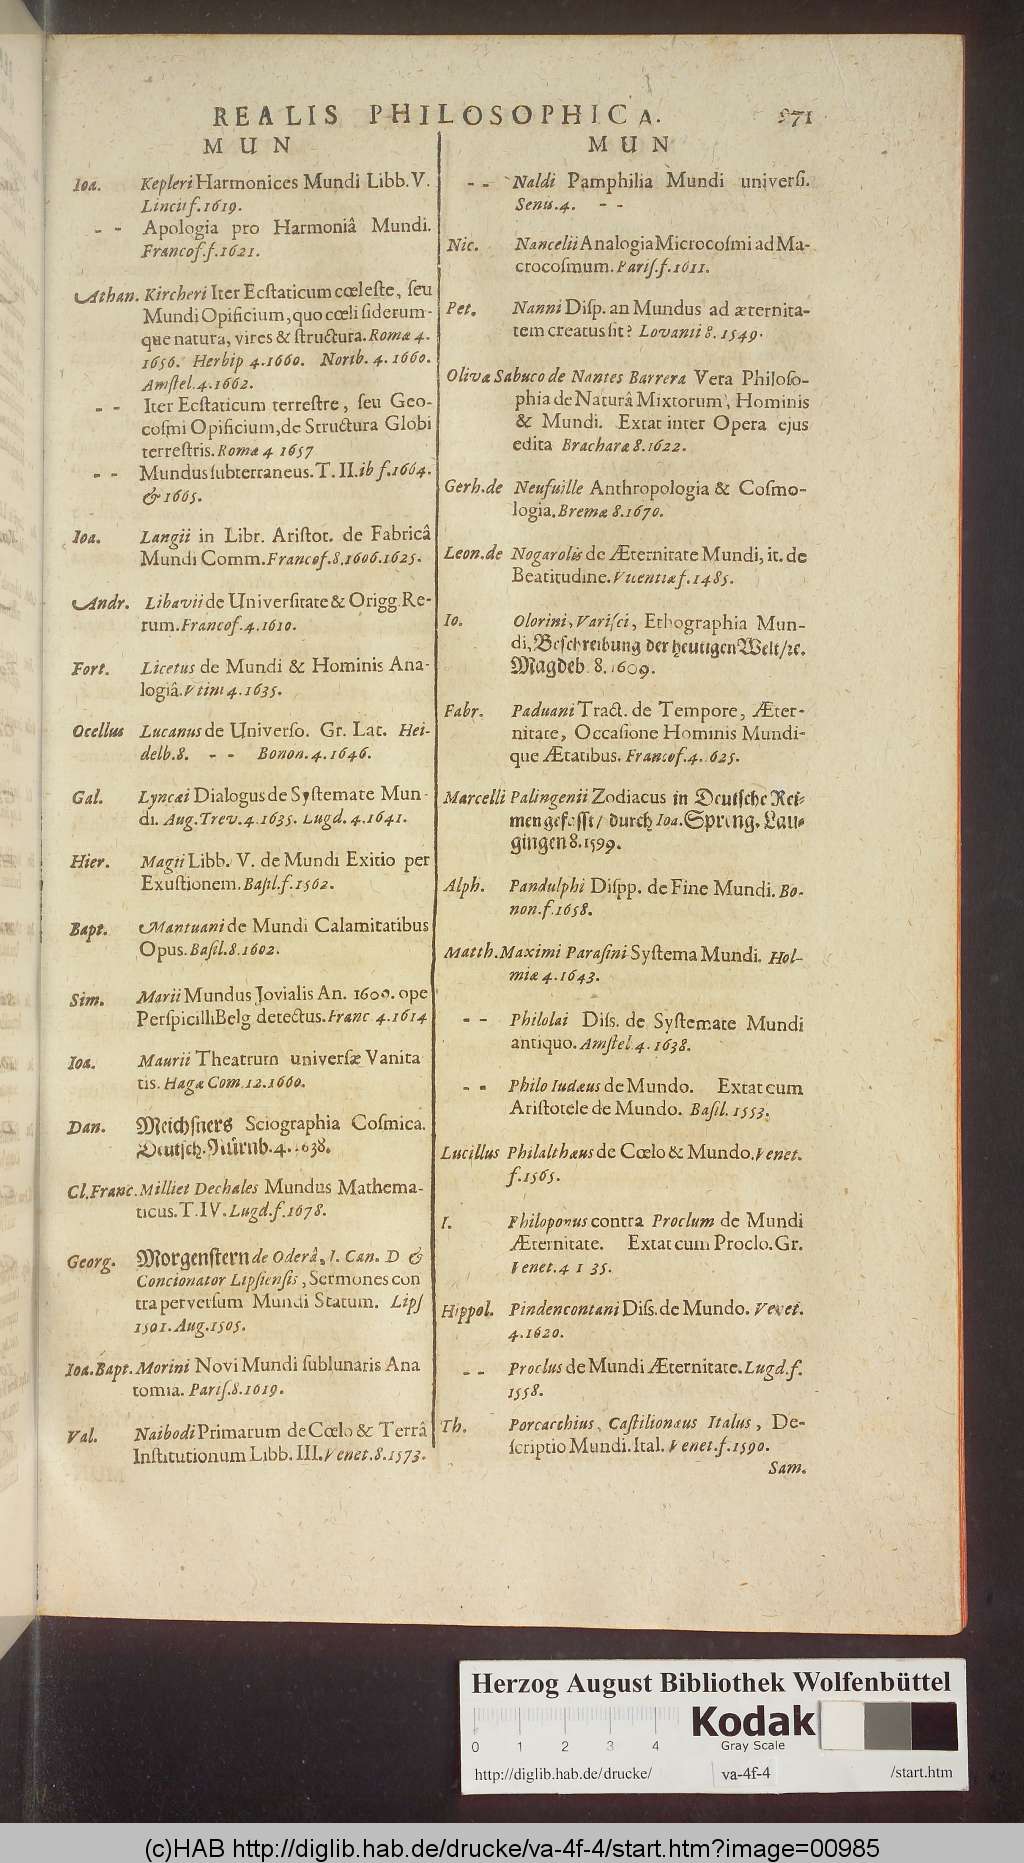 REALIS PHILOSOPHICA. 971
MUN
Ioa. Kepleri Harmonices Mundi Libb. V.
Lincii f. 1619.
- - Apologia pro Harmoniâ Mundi.
Francof. f. 1621.
Athan. Kircheri Iter Ecſtaticum cœleſte, ſeu
Mundi Opificium, quo cœli ſiderum-
que natura, vires & ſtructura. Romæ 4.
1656. Herbip 4. 1660. Norib. 4. 1660.
Amſtel. 4. 1662.
- - Iter Ecſtaticum terreſtre, ſeu Geo-
coſmi Opificium, de Structura Globi
terreſtris. Romæ 4 1657
- - Mundus ſubterraneus. T. II. ib f. 1664.
& 1665.
Ioa. Langii in Libr. Ariſtot. de Fabricâ
Mundi Comm. Francof. 8. 1606. 1625.
Andr. Libavii de Univerſitate & Origg. Re-
rum. Francof. 4. 1610.
Fort. Licetus de Mundi & Hominis Ana-
logiâ. Vtini 4. 1635.
Ocellus Lucanus de Univerſo. Gr. Lat. Hei-
delb. 8. - - Bonon. 4. 1646.
Gal. Lyncæi Dialogus de Syſtemate Mun-
di. Aug. Trev. 4. 1635. Lugd. 4. 1641.
Hier. Magii Libb. V. de Mundi Exitio per
Exuſtionem. Baſil. f. 1562.
Bapt. Mantuani de Mundi Calamitatibus
Opus. Baſil. 8. 1602.
Sim. Marii Mundus Jovialis An. 1609. ope
Perſpicilli Belg detectus. Franc 4. 1614
Ioa. Maurii Theatrum univerſæ Vanita
tis. Hagæ Com. 12. 1660.
Dan. Meichſners Sciographia Coſmica.
Deutſch. Nürnb. 4. 1638.
Cl. Franc. Milliet Dechales Mundus Mathema-
ticus. T. IV. Lugd. f. 1678.
Georg. Morgenſtern de Oderâ, I. Can. D &
Concionator Lipſienſis, Sermones con
tra perverſum Mundi Statum. Lipſ
1501. Aug. 1505.
Ioa. Bapt. Morini Novi Mundi ſublunaris Ana
tomia. Pariſ. 8. 1619.
Val. Naibodi Primarum de Cœlo & Terrâ
Inſtitutionum Libb. III. Venet. 8. 1573.
MUN
- - Naldi Pamphilia Mundi univerſi.
Senis. 4. - -
Nic. Nancelii Analogia Microcoſmi ad Ma-
crocoſmum. Pariſ. f. 1611.
Pet. Nanni Diſp. an Mundus ad æternita-
tem creatus ſit? Lovanii 8. 1549.
Olivæ Sabuco de Nantes Barrera Vera Philoſo-
phia de Naturâ Mixtorum, Hominis
& Mundi. Extat inter Opera ejus
edita Bracharæ 8. 1622.
Gerh. de Neufuille Anthropologia & Coſmo-
logia. Bremæ 8. 1670.
Leon. de Nogarolis de Æternitate Mundi, it. de
Beatitudine. Vicentiæ f. 1485.
Io. Olorini, Variſci, Ethographia Mun-
di, Beſchreibung der heutigen Welt/ ꝛc.
Magdeb. 8. 1609.
Fabr. Paduani Tract. de Tempore, Æter-
nitate, Occaſione Hominis Mundi-
que Ætatibus. Francof. 4. 625.
Marcelli Palingenii Zodiacus in Deutſche Rei-
men gefaſſt/ durch Ioa. Spreng. Lau-
gingen 8. 1599.
Alph. Pandulphi Diſpp. de Fine Mundi. Bo-
non. f. 1658.
Matth. Maximi Paraſini Syſtema Mundi. Hol-
miæ 4. 1643.
- - Philolai Diſs. de Syſtemate Mundi
antiquo. Amſtel. 4. 1638.
- - Philo Iudæus de Mundo. Extat cum
Ariſtotele de Mundo. Baſil. 1553.
Lucillus Philalthæus de Cœlo & Mundo. Venet.
f. 1565.
I. Philoponus contra Proclum de Mundi
Æternitate. Extat cum Proclo. Gr.
Venet. 4 1 35.
Hippol. Pindencontani Diſs. de Mundo. Venet.
4. 1620.
- - Proclus de Mundi Æternitate. Lugd. f.
1558.
Th. Porcacchius, Caſtilionæus Italus, De-
ſcriptio Mundi. Ital. Venet. f. 1590.
Sam.
Herzog August Bibliothek Wolfenbüttel
Kodak
Gray Scale
0 1 2 3 4
http://diglib.hab.de/drucke/ va-4f-4 /start.htm
(c)HAB http://diglib.hab.de/drucke/va-4f-4/start.htm?image=00985